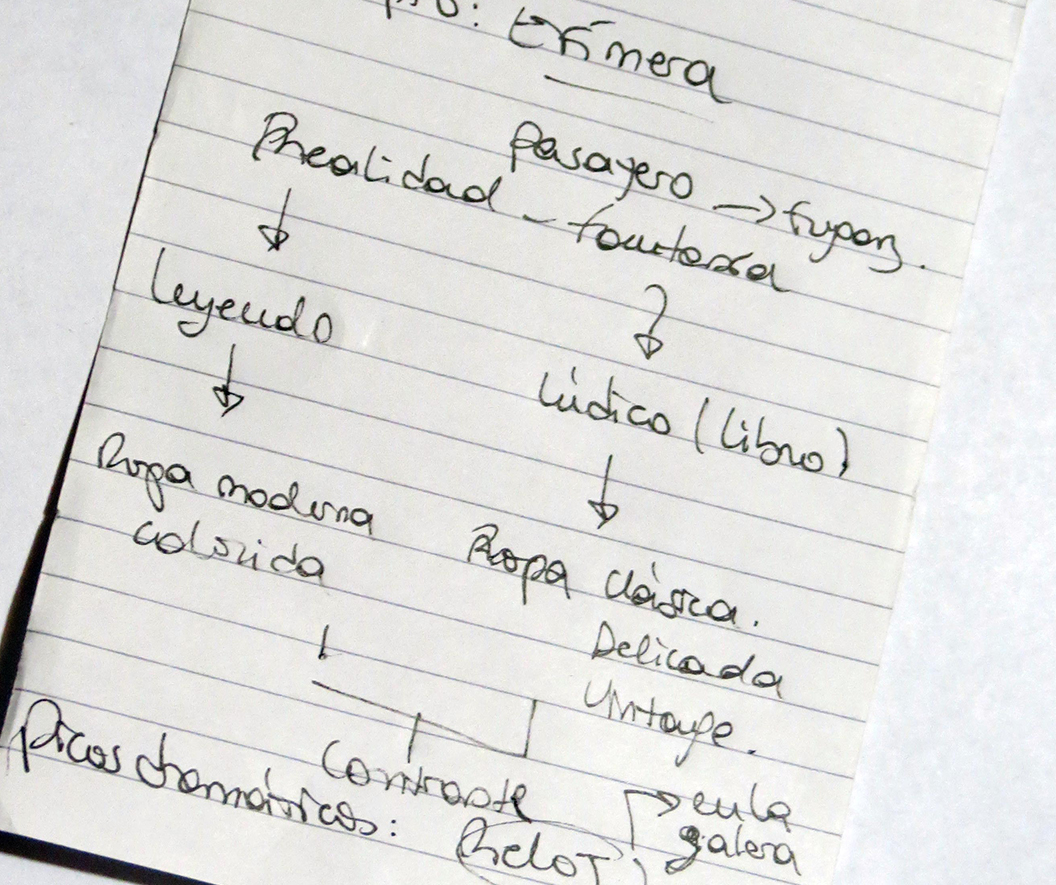 Efímera
Pasajero → fugaz.
Realidad - fantasía
Leyendo
Lúdico (libro)
Ropa moderna
colorida
Ropa clásica.
Delicada
Vintage.
Contraste
Picos dramáticos: Reloj
→ en la
galera